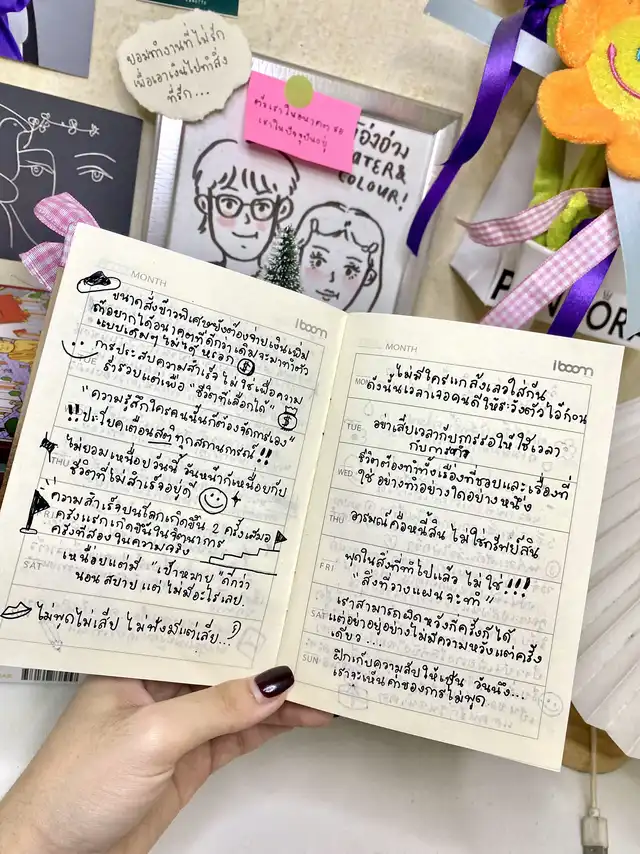 ยอมทำงานที่ไม่รัก
เพื่อเอาเงินไปทำสิ่ง
ที่รัก...
ตัวเราในอนาคต รอ
เราในปัจจุบันอยู่
WATER&
COLOUR!
PANDORA
MONTH
iboom
ขนาดสั่งข้าวพิเศษยังต้องจ่ายเงินเพิ่ม
ถ้าอยากได้อนาคตที่ดีกว่าเดิมจะมาทำตัว
แบบเดิมๆ ไม่ได้ หรอก
TUE
การประสบความสำเร็จ ไม่ใช่เพื่อความ
ร่ำรวยแต่เพื่อ "ชีวิตที่เลือกได้"
"ความรู้สึกใครคนนั้นก็ต้องจัดการเอง"
!! ประโยคเตือนสติทุกสถานการณ์ !!
ไม่ยอมเหนื่อยวันนี้ วันหน้าก็เหนื่อยกับ
THU
ชีวิตที่ไม่สำเร็จอยู่ดี
ความสำเร็จบนโลกเกิดขึ้น 2 ครั้งเสมอ
FRI
ครั้งแรกเกิดขึ้นในจินตนาการ
ครั้งที่สองในความจริง
SAT
เหนื่อยแต่มี "เป้าหมาย" ดีกว่า
นอน สบาย แต่ ไม่มีอะไรเลย.
ไม่พูดไม่เสีย ไม่ฟังมีแต่เสีย...
MONTH
iboom
ไม่มีใครแกล้งเลวใส่กัน
ดังนั้นเวลาเจอคนดีให้ระวังตัวไว้ก่อน
TUE
อย่าเสียเวลากับการรอให้ใช้เวลา
กับการทำ
WED
ชีวิตต้องทำทั้งเรื่องที่ชอบและเรื่องที่
ใช่ อย่างทำอย่างใดอย่างหนึ่ง
THU
อารมณ์คือหนี้สิน ไม่ใช่ทรัพย์สิน
FRI
พูดในสิ่งที่ทำไปแล้ว ไม่ใช่ !!!
"สิ่งที่วางแผนจะทำ"
SAT
เราสามารถผิดหวังกี่ครั้งก็ได้
แต่อย่าอยู่อย่างไม่มีความหวังแต่ครั้ง
เดียว ...
SUN
ฝึกเก็บความลับให้เป็น วันนึง...
เราจะเห็นค่าของการไม่พูด